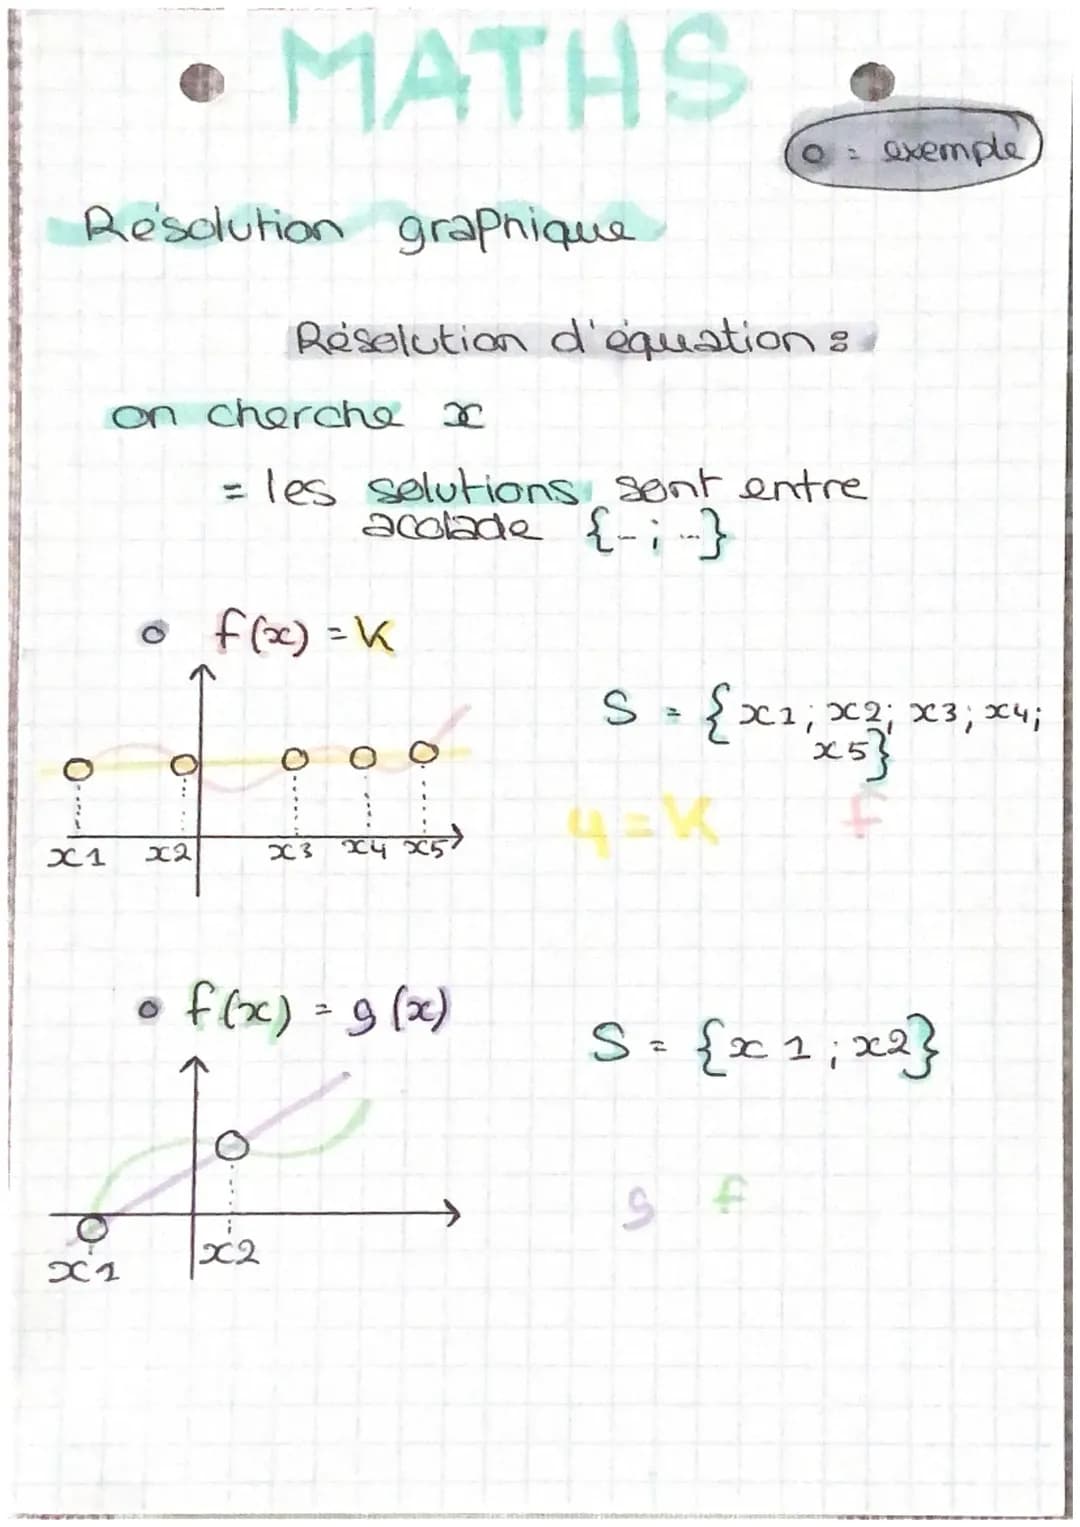 MATHS
o = exemple
Résolution graphique
Résolution d'équation :
on cherche x
= les solutions sont entre
acolade {-; --}
o f(x) = K
S = {x1; x2; x3; x4;
x5}
y = K f
x1 x2 x3 x4 x5
o f(x) = g(x)
S = {x1; x2}
g f
x1 x2